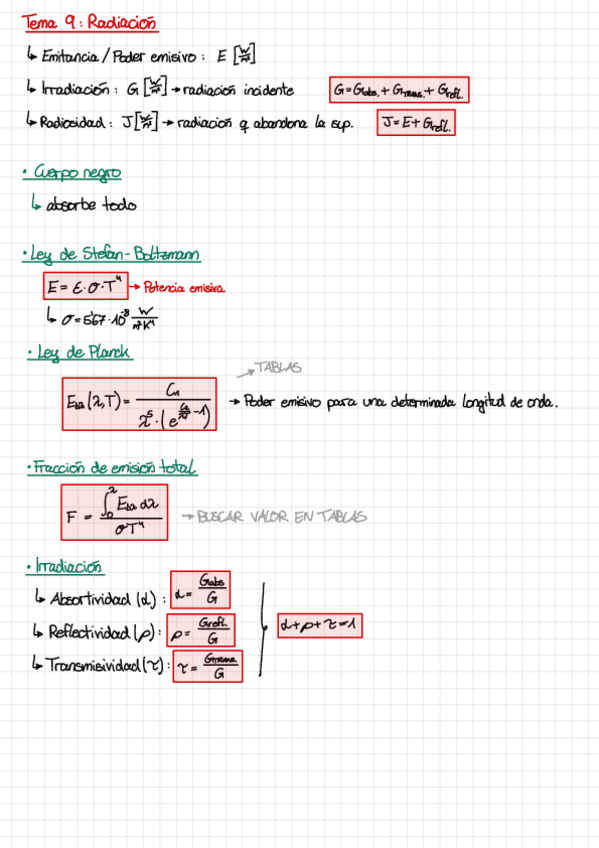 Tema 9: Radiación
↳ Emitancia / Poder emisivo : E [W/m²]
↳ Irradiación : G [W/m²] → radiación incidente G = Gabs. + Gtrans. + Grefl.
↳ Radiosidad : J [W/m²] → radiación q abandona la sup. J = E + Grefl.
• Cuerpo negro
↳ absorbe todo
• Ley de Stefan-Boltzmann
E = ε · σ · T⁴ → Potencia emisiva
↳ σ = 5'67 · 10⁻⁸ W/m²K⁴
• Ley de Planck
→ TABLAS
Ebλ (λ,T) = C₁ / λ⁵ · (e^(C₂/λT) - 1) → Poder emisivo para una determinada longitud de onda.
• Fracción de emisión total
F = ∫₀^λ Ebλ dλ / σT⁴ → BUSCAR VALOR EN TABLAS
• Irradiación
↳ Absortividad (α) : α = Gabs / G
↳ Reflectividad (ρ) : ρ = Grefl. / G α + ρ + τ = 1
↳ Transmisividad (τ) : τ = Gtrans. / G